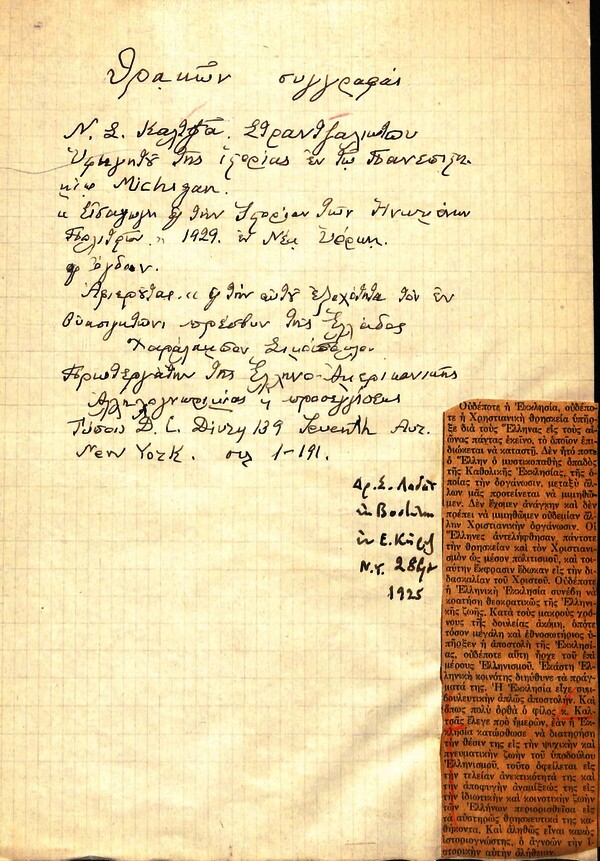 Θρακῶν συγγραφαὶ
Ν. Σ. Καλτσᾶ. Στραντζαλιώτου
Ὑφηγητοῦ τῆς ἱστορίας ἐν τῷ Πανεπιστη-
μίῳ Michigan.
Εἰσαγωγὴ εἰς τὴν Ἱστορίαν τῶν Ἡνωμένων
Πολιτειῶν" 1929. ἐν Νέᾳ Ὑόρκῃ.
Ἀφιεροῦται εἰς τὴν αὐτοῦ ἐξοχότητα τὸν ἐν
Οὐασιγκτῶνι πρέσβυν τῆς Ἑλλάδος
Χαράλαμπον Σιμόπουλον
Πρωτεργάτην τῆς Ἑλληνο-Ἀμερικανικῆς
Ἀλληλογνωριμίας καὶ προσεγγίσεως
Τύποις D. C. Divry 139 Seventh Ave.
New York. σελ 1-191.
Δρ. Σ. Λαδᾶς
ἐν Βοστώνῃ
ἐν Ε. Κήρυξ
Ν.Υ. 28
1925
Οὐδέποτε ἡ Ἐκκλησία, οὐδέπο-
τε ἡ Χρηστιανικὴ θρησκεία ὑπῆρ-
ξε διὰ τοὺς Ἕλληνας εἰς τοὺς αἰ-
ῶνας πάντας ἐκεῖνο, τὸ ὁποῖον ἐπι-
διώκεται νὰ καταστῇ. Δὲν ἦτο ποτὲ
ὁ Ἕλλην ὁ μυστικοπαθὴς ὀπαδὸς
τῆς Καθολικῆς Ἐκκλησίας, τῆς ὁ-
ποίας τὴν ὀργάνωσιν, μεταξὺ ἄλ-
λων μᾶς προτείνεται νὰ μιμηθῶ-
μεν. Δὲν ἔχομεν ἀνάγκην καὶ δὲν
πρέπει νὰ μιμηθῶμεν οὐδεμίαν ἄλ-
λην Χριστιανικὴν ὀργάνωσιν. Οἱ
Ἕλληνες ἀντελήφθησαν, πάντοτε
τὴν θρησκείαν καὶ τὸν Χριστιανι-
σμὸν ὡς μέσον πολιτισμοῦ, καὶ τοι-
αύτην ἔκφρασιν ἔδωκαν εἰς τὴν δι-
δασκαλίαν τοῦ Χριστοῦ. Οὐδέποτε
ἡ Ἑλληνικὴ Ἐκκλησία συνέβη νὰ
κρατήσῃ θεοκρατικῶς τῆς Ἑλληνι-
κῆς ζωῆς. Κατὰ τοὺς μακροὺς χρό-
νους τῆς δουλείας ἀκόμη, ὁπότε
τόσον μεγάλη καὶ ἐθνοσωτήριος ὑ-
πῆρξεν ἡ ἀποστολὴ τῆς Ἐκκλησί-
ας, οὐδέποτε αὕτη ἦρχε τοῦ ἐπὶ
μέρους Ἑλληνισμοῦ. Ἑκάστη Ἑλ-
ληνικὴ κοινότης διηύθυνε τὰ πράγ-
ματά της. Ἡ Ἐκκλησία εἶχε συμ-
βουλευτικὴν ἁπλῶς ἀποστολήν. Καὶ
ὅπως πολὺ ὀρθὰ ὁ φίλος κ. Καλ-
τσᾶς ἔλεγε πρὸ ἡμερῶν, ἐὰν ἡ Ἐκ-
κλησία κατώρθωσε νὰ διατηρήσῃ
τὴν θέσιν της εἰς τὴν ψυχικὴν καὶ
πνευματικὴν ζωὴν τοῦ ὑποδούλου
Ἑλληνισμοῦ, τοῦτο ὀφείλεται εἰς
τὴν τελείαν ἀνεκτικότητά της καὶ
τὴν ἀποφυγὴν ἀναμίξεώς της εἰς
τὴν ἰδιωτικὴν καὶ κοινοτικὴν ζωὴν
τῶν Ἑλλήνων περιορισθεῖσα εἰς
τὰ αὐστηρῶς θρησκευτικά της κα-
θήκοντα. Καὶ ἀληθῶς εἶναι κακὸς
ἱστοριογνώστης, ὁ ἀγνοῶν τὴν ἱ-
στορικὴν αὐτὴν ἀλήθειαν.